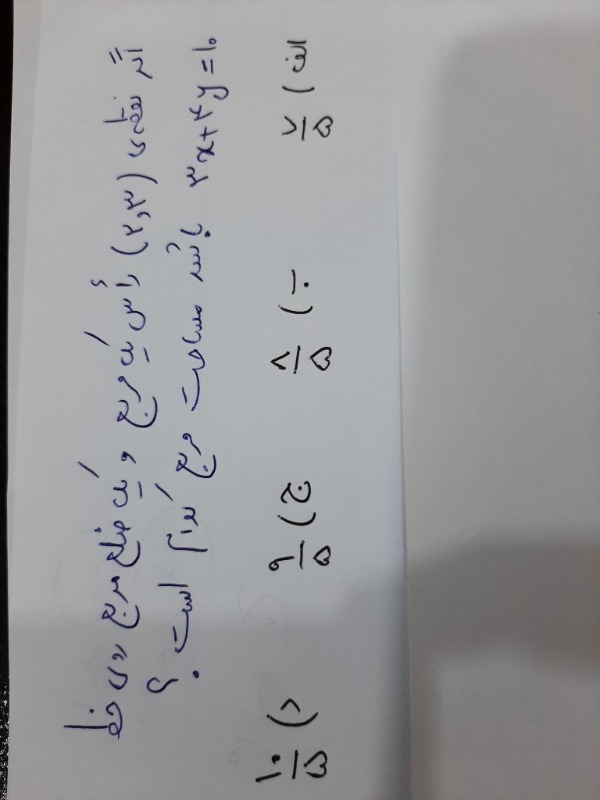 اگر نقطه‌ی (۲,۳) رأس یک مربع و یک ضلع مربع روی خط
۳x+۴y=۱۰ باشد مساحت مربع کدام است ؟
الف) ۷/۵ ب) ۸/۵ ج) ۹/۵ د) ۱۰/۵